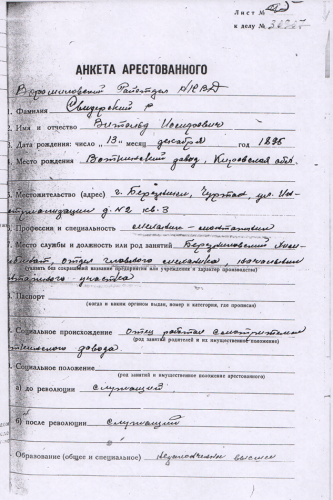 Лист №
к делу №
АНКЕТА АРЕСТОВАННОГО
Ворошиловский Райотдел НКВД
1. Фамилия Свидерский
2. Имя и отчество Витольд Иосифович
3. Дата рождения: число 13 месяц декабря год 1896
4. Место рождения Воткинский завод, Кировская обл.
5. Местожительство (адрес) г. Березники, Чуртан, ул. Ин-
дустриализации д. №2 кв. 3
6. Профессия и специальность механик-монтажник
7. Место службы и должность или род занятий Березниковский Хим-
комбинат, отдел главного механика, начальник
участка
(указать без сокращений название предприятия или учреждения и характер производства)
8. Паспорт
(когда и каким органом выдан, номер и категория, где прописан)
9. Социальное происхождение отец работал смотрителем
(род занятий родителей и их имущественное положение)
завода
Социальное положение
(род занятий и имущественное положение арестованного)
а) до революции служащий
б) после революции служащий
Образование (общее и специальное) незаконченное высшее